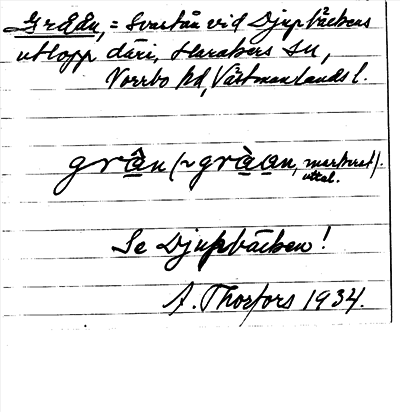 Gråån, = Svartån vid Djupbäckens
utlopp däri, Harakers sn,
Norrbo hd, Västmanlands l.
grân (~ gràan, markerat uttal.)
Se Djupbäcken!
A. Thorfors 1934.